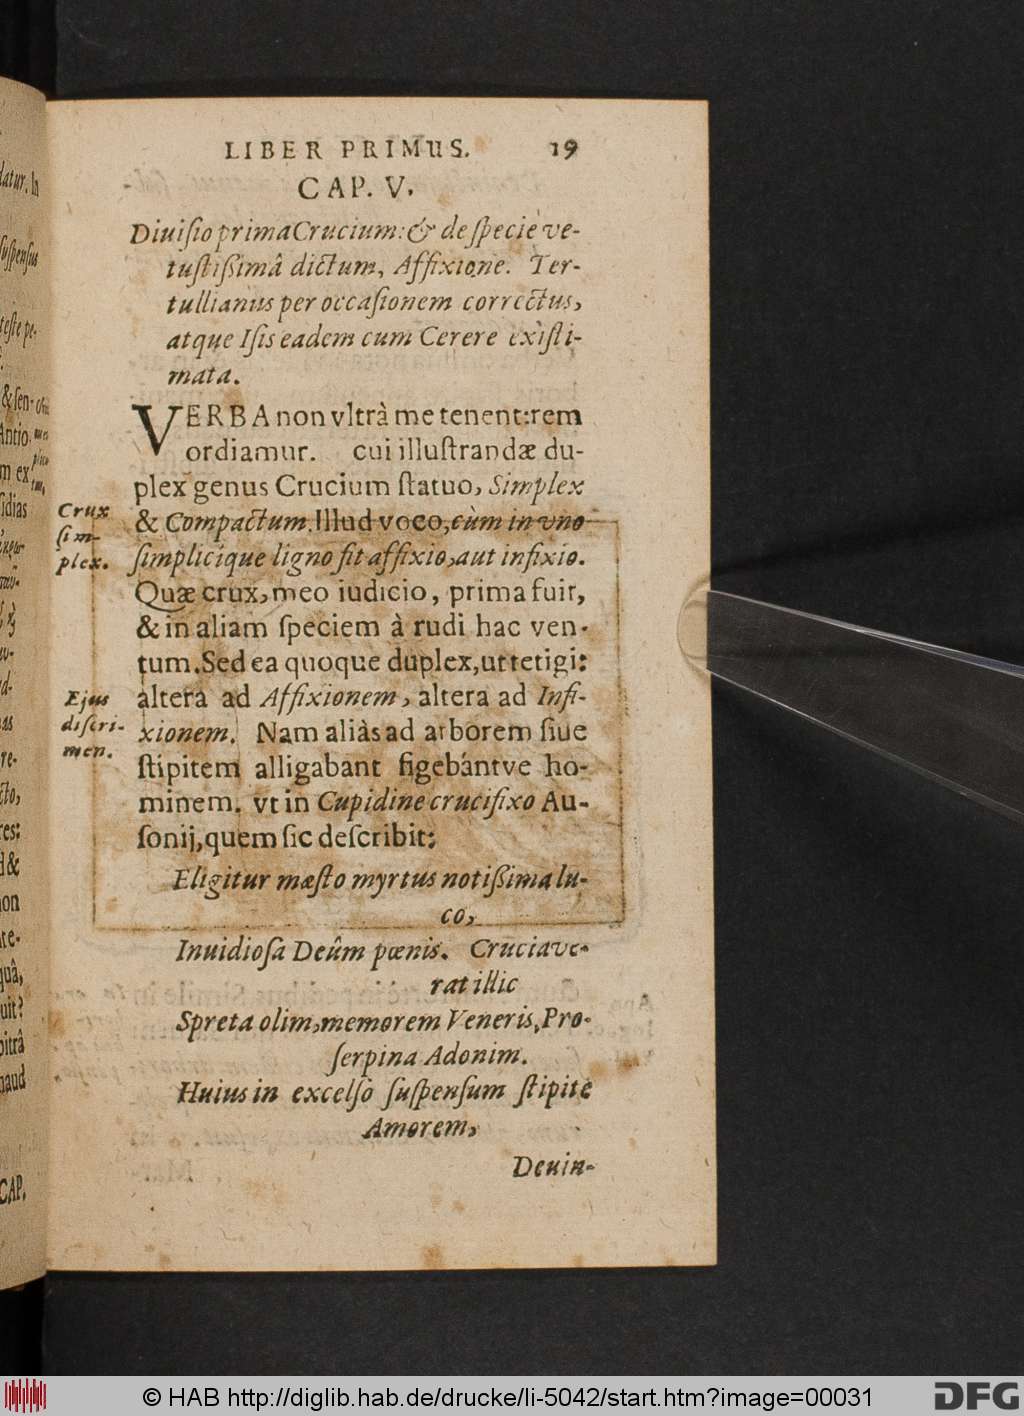 LIBER PRIMUS. 19
CAP. V.
Diuiſio prima Crucium: & de ſpecie ve-
tuſtißimâ dictum, Affixione. Ter-
tullianus per occaſionem correctus,
atque Iſis eadem cum Cerere exiſti-
mata.
VERBA non vltrà me tenent: rem
ordiamur. cui illuſtrandæ du-
plex genus Crucium ſtatuo, Simplex
Crux
& Compactum. Illud voco, cùm in vno
ſim-
ſimplicique ligno fit affixio, aut infixio.
plex.
Quæ crux, meo iudicio, prima fuit,
& in aliam ſpeciem à rudi hac ven-
tum. Sed ea quoque duplex, ut tetigi:
Ejus
altera ad Affixionem, altera ad Infi-
diſcri-
xionem. Nam aliàs ad arborem ſiue
men.
ſtipitem alligabant figebántve ho-
minem. vt in Cupidine crucifixo Au-
ſonij, quem ſic deſcribit:
Eligitur mæſto myrtus notißima lu-
co,
Inuidioſa Deûm pœnis. Cruciave-
rat illic
Spreta olim, memorem Veneris, Pro-
ſerpina Adonim.
Huius in excelſo ſuſpenſum ſtipite
Amorem,
Deuin-
© HAB http://diglib.hab.de/drucke/li-5042/start.htm?image=00031
DFG